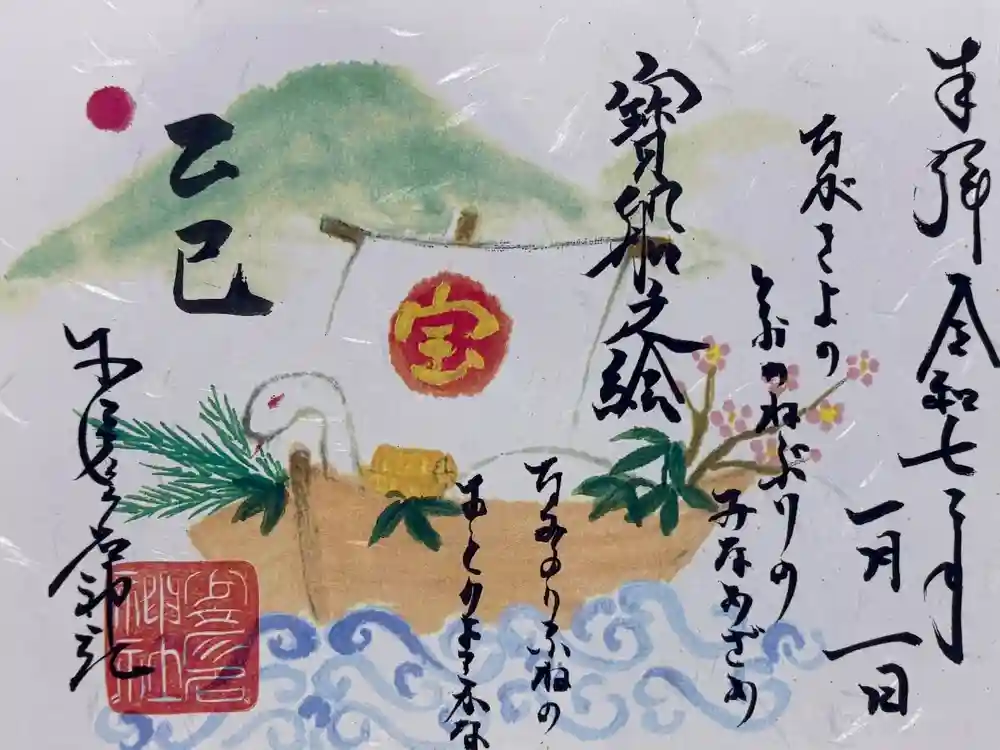 奉拝 令和七年
一月一日
なかきよの
とおのねぶりの
みなめざめ
寶船之絵
なみのりふねの
おとのよきかな
宝
乙巳
神社